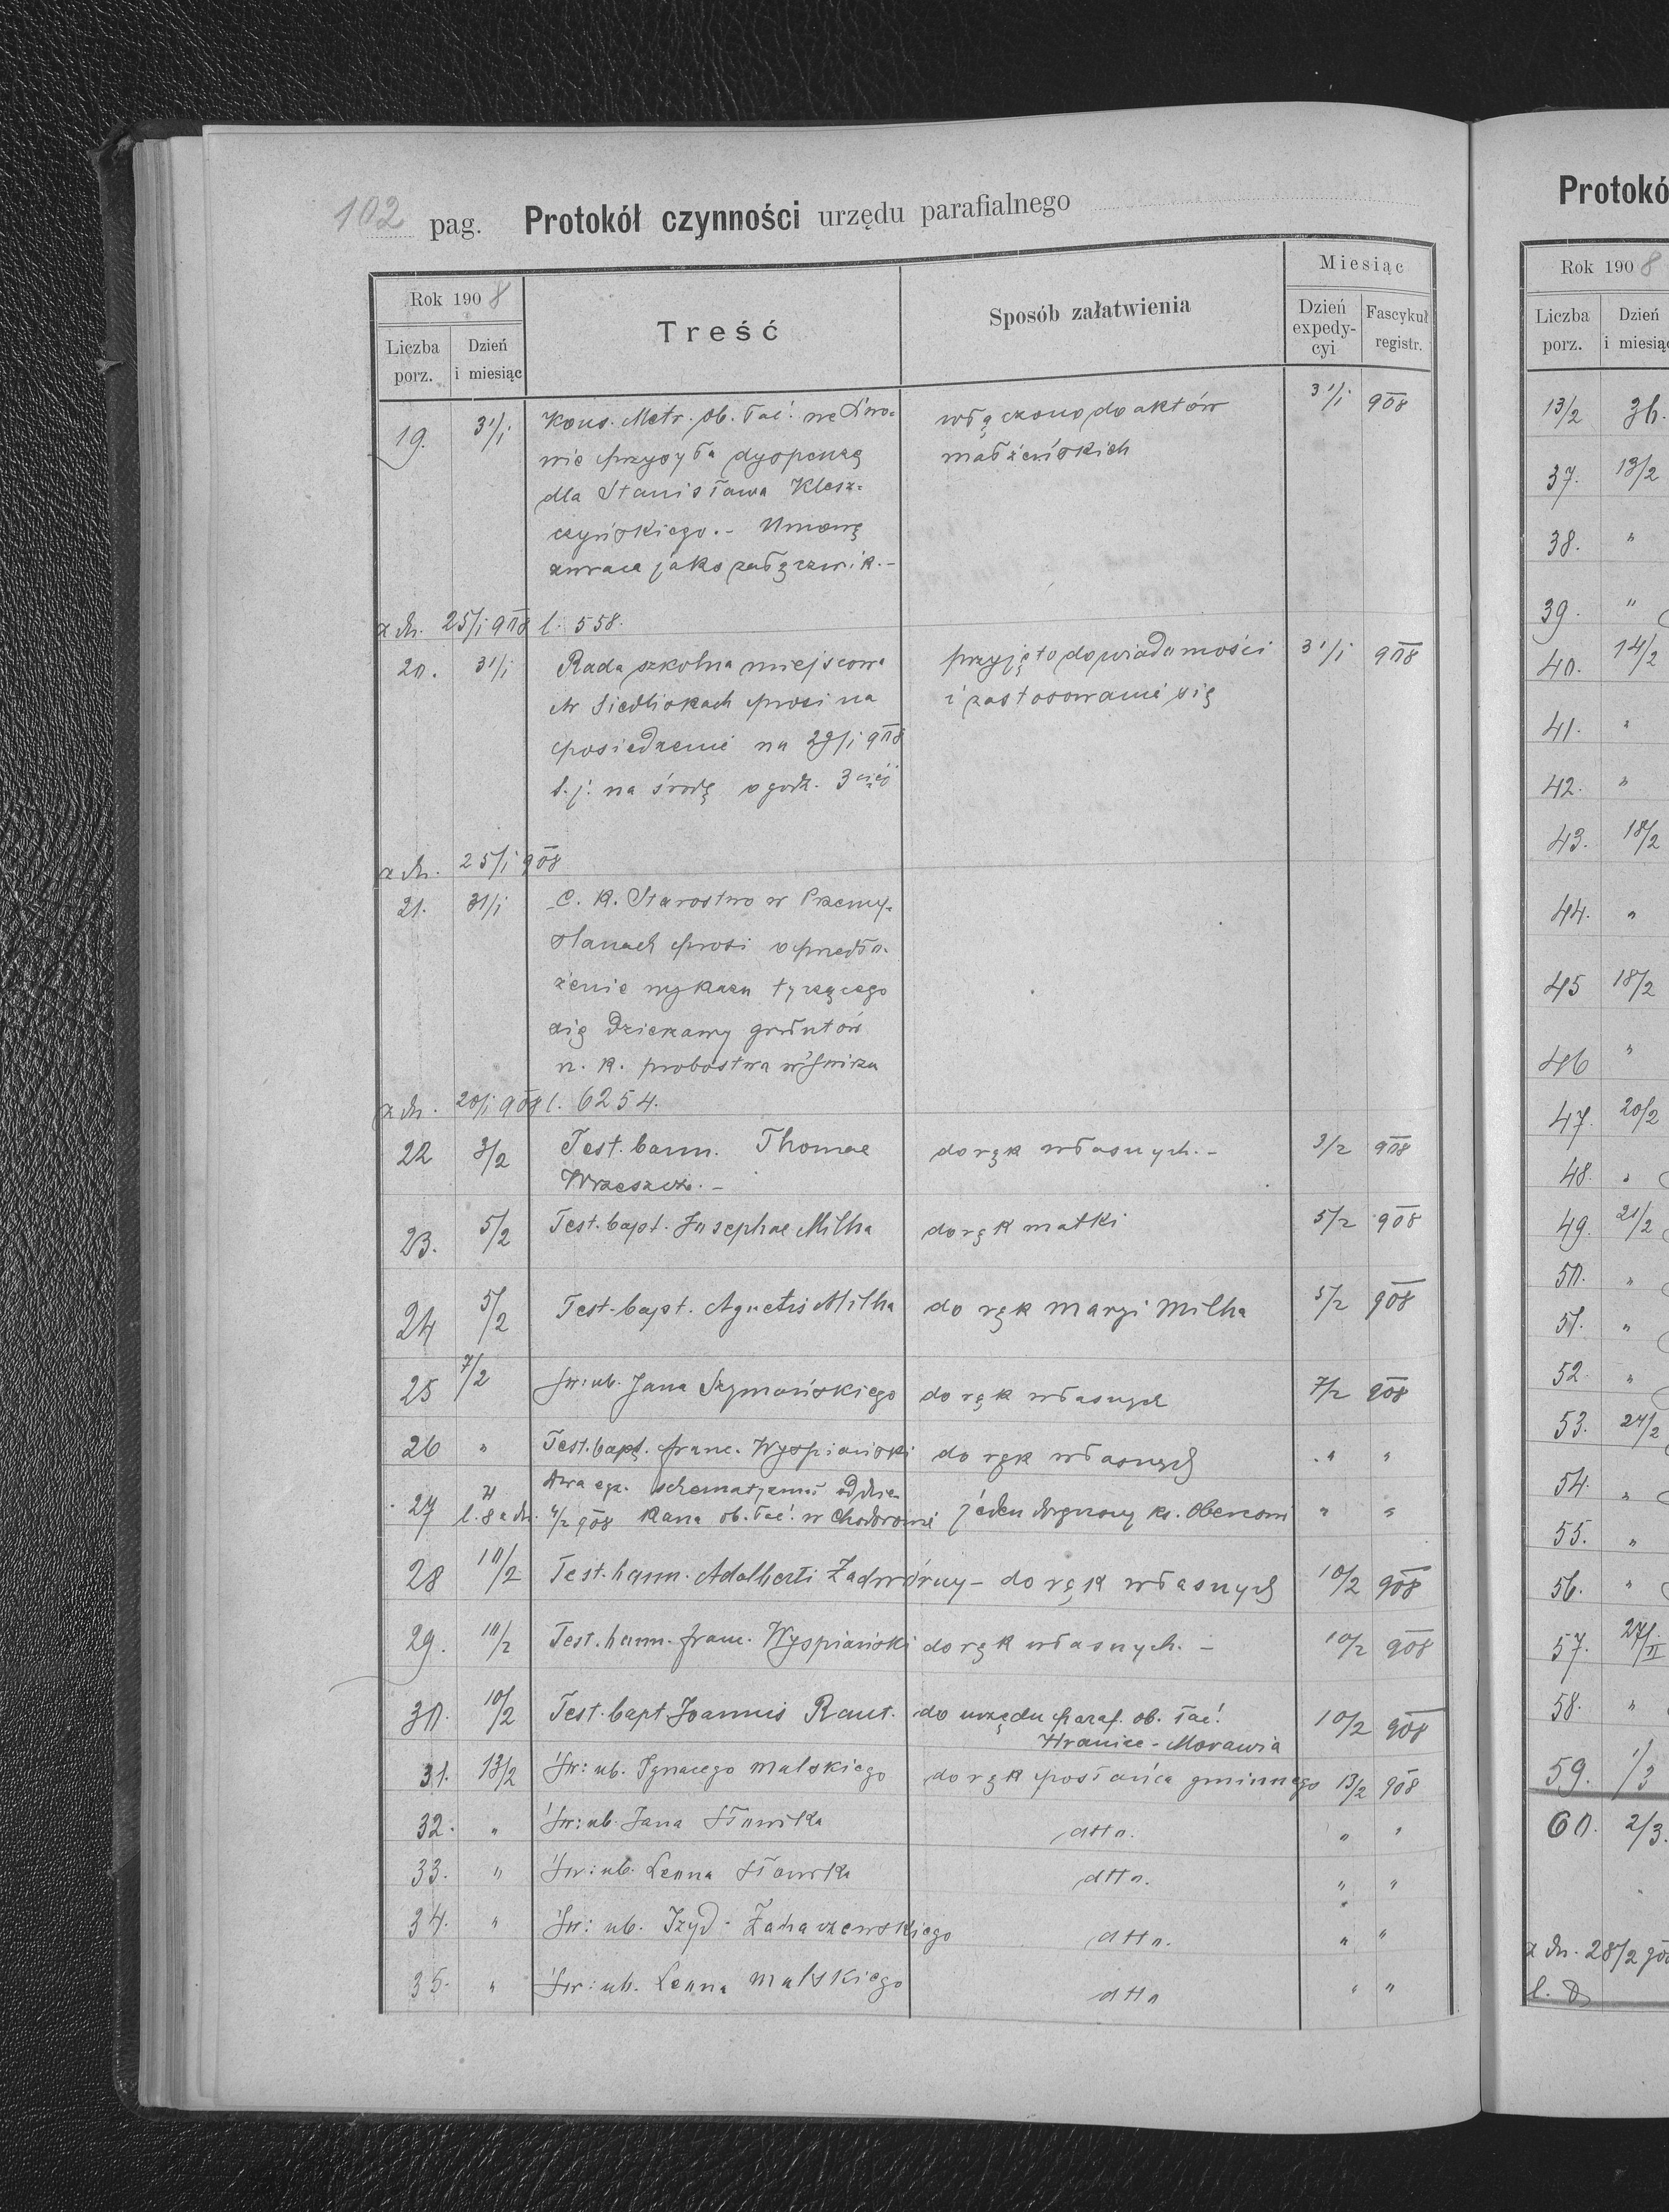 102 pag. Protokół czynności urzędu parafialnego
Rok 1908
Liczba porz.
Dzień i miesiąc
Treść
Sposób załatwienia
Miesiąc
Dzień expedycyi
Fascykuł registr.
19. 31/1 Kons. Metr. ob. łać. we Lwo- włączono do aktów 31/1 908
wie przysyła dyspensę małżeńskich
dla Stanisława Klesz-
czyńskiego. - Umowę
zwraca jako załącznik. -
z dn. 25/1 908 l. 558.
20. 31/1 Rada szkolna miejscowa przyjęto do wiadomości 31/1 908
w Siedliskach prosi na i zastosowania się
posiedzenie na 29/1 908
t. j. na środę o godz. 3ciej
z dn. 25/1 908
21. 31/1 C. K. Starostwo w Przemy-
ślanach prosi o przedło-
żenie wykazu tyczącego
się dzierżawy gruntów
r. k. probostwa w Świrzu
z dn. 20/1 908 l. 6254.
22 3/2 Test. bann. Thomae do rąk własnych. - 3/2 908
Wrzeszcz. -
23. 5/2 Test. bapt. Josephae Milha do rąk matki 5/2 908
24 5/2 Test. bapt. Agnetis Milha do rąk Maryi Milha 5/2 908
25 7/2 Św: ub. Jana Szymańskiego do rąk własnych 7/2 908
26 " Test. bapt. Franc. Wyspiański do rąk własnych " "
Dwa egz. schematyzmu od dzie-
27 " l. 8 z dn. 4/2 908 kana ob. łać. w Chodorowie jeden doręczony ks. " "
28 10/2 Test. bann. Adalberti Zadwórny - do rąk własnych 10/2 908
29. 10/2 Test. bann. Franc. Wyspiański do rąk własnych. - 10/2 908
30. 10/2 Test. bapt Joannis Raut. do urzędu paraf. ob. łać. 10/2 908
Hranice - Morawia
31. 13/2 Św: ub. Ignacego Malskiego do rąk posłańca gminnego 13/2 908
32. " Św: ub. Jana Sławitka dtto. " "
33. " Św: ub. Leona dtto. " "
34. " Św: ub. Izyd. Zacharzewskiego dtto. " "
35. " Św: ub. Leona Malskiego dtto " "
Protokó
Rok 1908
Liczba porz.
Dzień i miesiąc
13/2 36.
37. 13/2
38. "
39. "
40. 14/2
41. "
42. "
43. 18/2
44. "
45 18/2
46 "
47. 20/2
48. "
49. 21/2
50. "
51. "
52. "
53. 24/2
54. "
55. "
56. "
57. 27/II
58. "
59. 1/3
60. 2/3.
z dn. 28/2 90